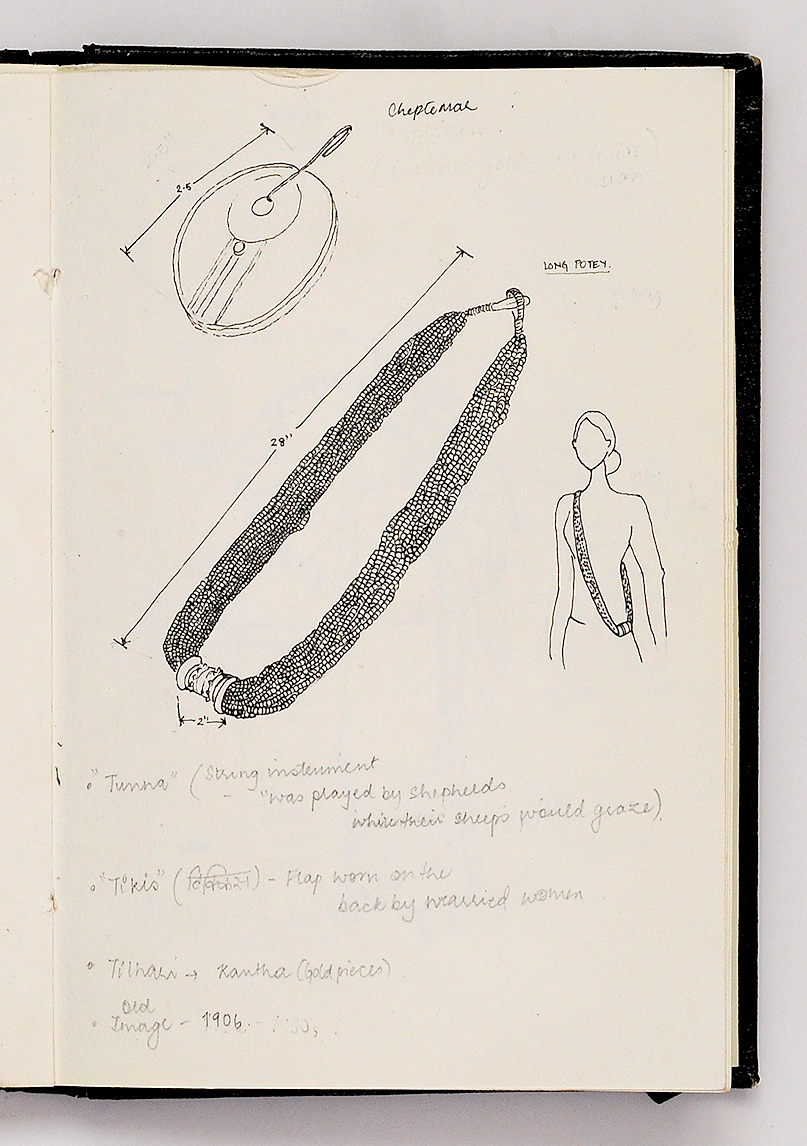 Cheptemae
2.5
LONG POTEY.
28"
2"
"Tunna" (String instrument
- "was played by shepherds
while their sheeps would graze).
"Tikis" ( ) - Flap worn on the
back by married women
Tilhari → Kantha (Gold pieces)
Old
Image - 1906 -